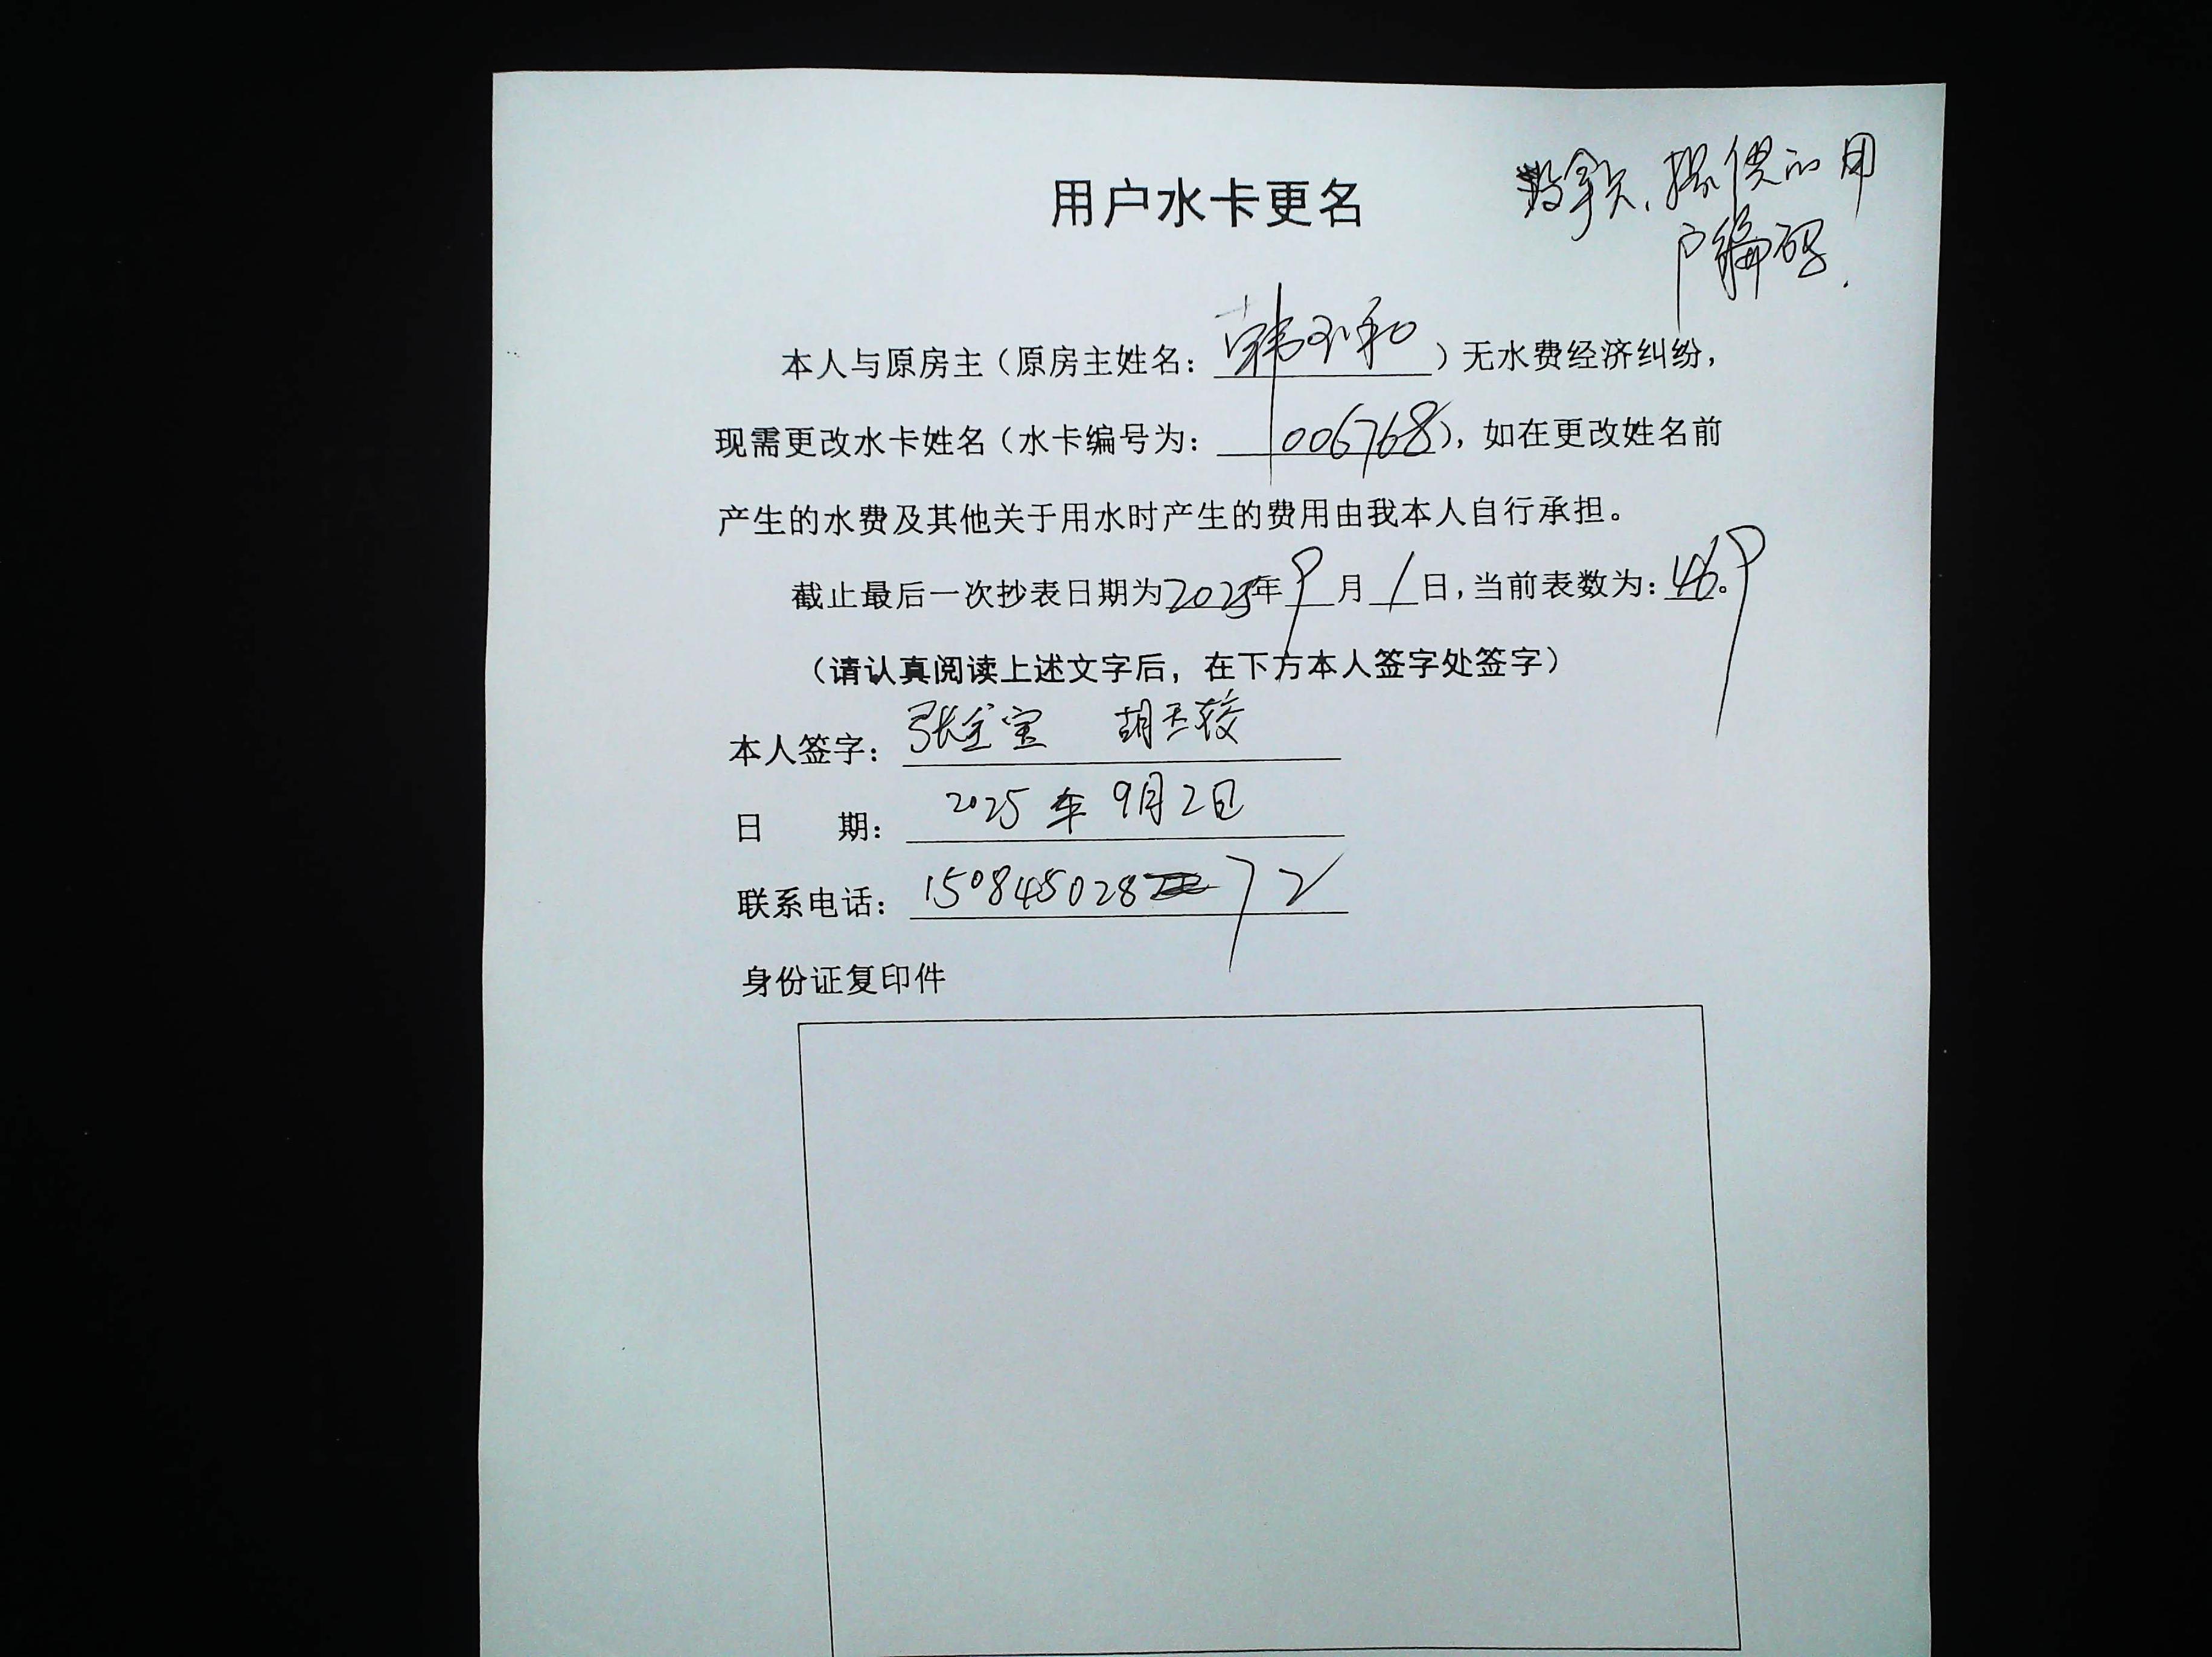 用户水卡更名
没拿卡、提供的用
户编码.
本人与原房主（原房主姓名：韩玉和）无水费经济纠纷，
现需更改水卡姓名（水卡编号为：006768），如在更改姓名前
产生的水费及其他关于用水时产生的费用由我本人自行承担。
截止最后一次抄表日期为2025年9月1日，当前表数为：469。
（请认真阅读上述文字后，在下方本人签字处签字）
本人签字：张金宝 胡玉姣
日 期：2025年9月2日
联系电话：15084502872
身份证复印件